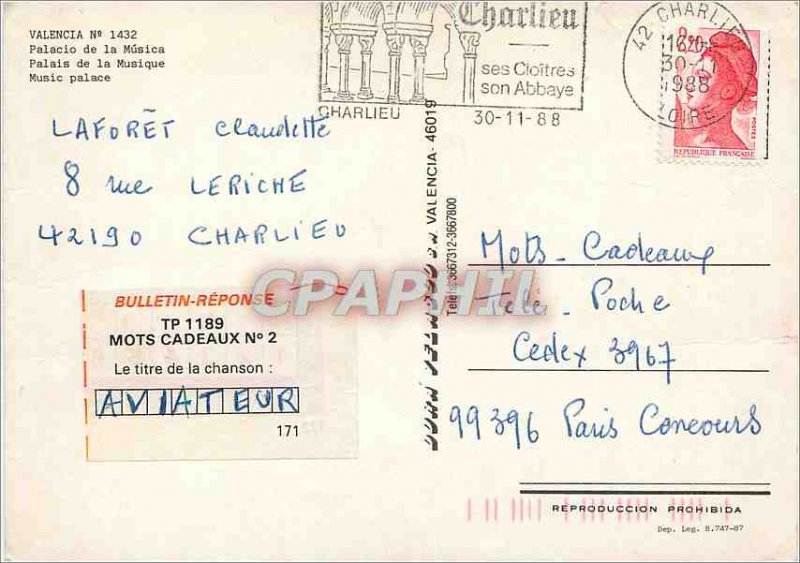 VALENCIA Nº 1432
Palacio de la Música
Palais de la Musique
Music palace
Charlieu
ses Cloîtres
son Abbaye
CHARLIEU
30-11-88
42 CHARLIEU
30-11
1988
LOIRE
2,20
POSTES
REPUBLIQUE FRANÇAISE
LAFORÊT Claudette
8 rue LERICHE
42190 CHARLIEU
BULLETIN-RÉPONSE
TP 1189
MOTS CADEAUX Nº 2
Le titre de la chanson :
AVIATEUR
171
VALENCIA - 46019
Teléfs: 3667312-3667800
CPAPHIL
Mots - Cadeaux
Télé - Poche
Cedex 3967
99396 Paris Concours
REPRODUCCION PROHIBIDA
Dep. Leg. B.747-87